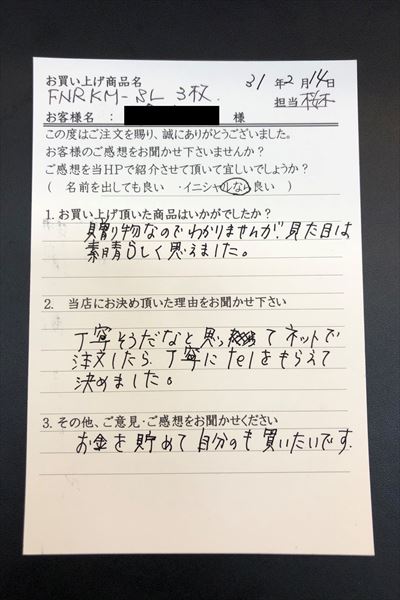 お買い上げ商品名 31年2月14日
FNRKM-SL 3枚. 担当
お客様名 : 様
この度はご注文を賜り、誠にありがとうございました。
お客様のご感想をお聞かせ下さいませんか?
ご感想を当HPで紹介させて頂いて宜しいでしょうか?
( 名前を出しても良い ・イニシャルなら良い )
1. お買い上げ頂いた商品はいかがでしたか?
贈り物なのでわかりませんが、見た目は
素晴らしく思えました。
2. 当店にお決め頂いた理由をお聞かせ下さい
丁寧そうだなと思って ネットで
注文したら、丁寧にtelをもらえて
決めました。
3. その他、ご意見・ご感想をお聞かせください
お金を貯めて自分のも買いたいです.